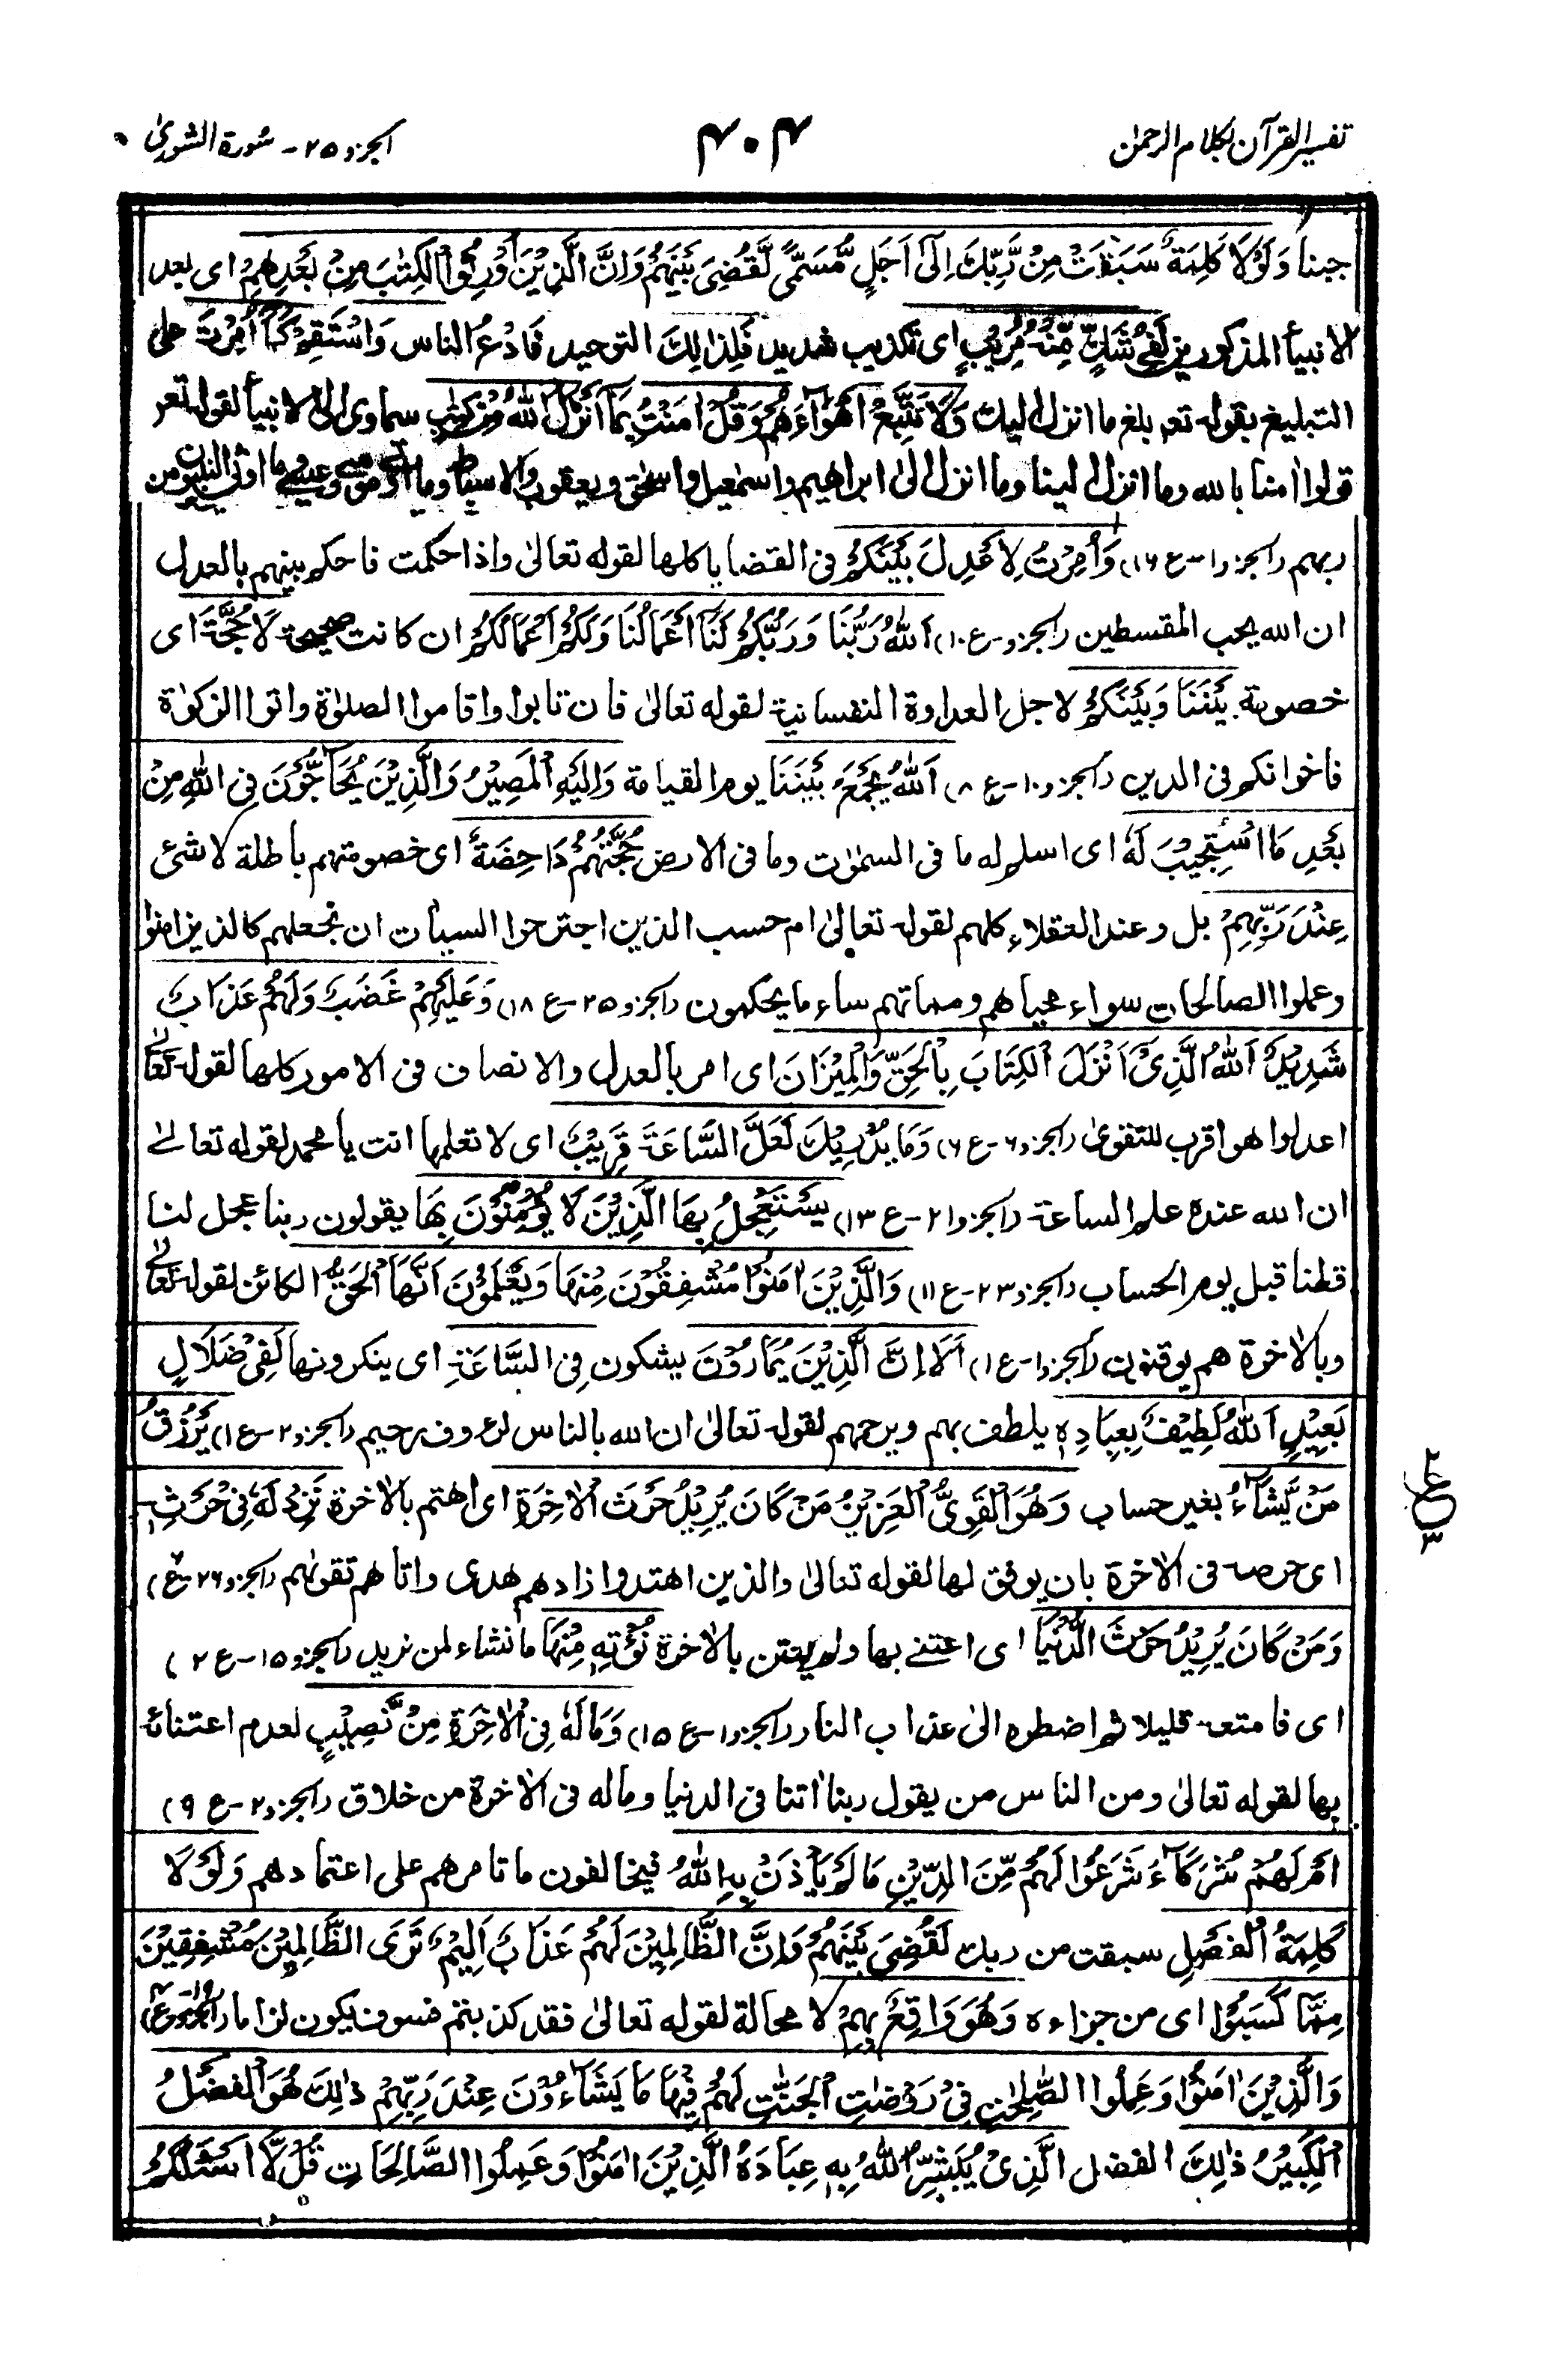 تفسیر القرآن بکلام الرحمٰن
۴۰۴
الجزو ۲۵ - سُورة الشوریٰ
حینًا وَلَوْلَا كَلِمَةٌ سَبَقَتْ مِنْ رَّبِّكَ اِلٰۤى اَجَلٍ مُّسَمًّى لَّقُضِیَ بَیْنَهُمْ وَاِنَّ الَّذِیْنَ اُوْرِثُوا الْكِتٰبَ مِنْ بَعْدِهِمْ ای بعد
الانبیأ المذکورین لَفِیْ شَكٍّ مِّنْهُ مُرِیْبٍ ای تکذیب شدید فَلِذٰلِكَ التوحید فَادْعُ الناس وَاسْتَقِمْ كَمَاۤ اُمِرْتَ علی
التبلیغ بقوله تعر بلغ ما انزل الیك وَلَا تَتَّبِعْ اَهْوَآءَهُمْ وَقُلْ اٰمَنْتُ بِمَاۤ اَنْزَلَ اللّٰهُ مِنْ كِتٰبٍ سماوی الی الانبیأ لقوله تعر
قولوا اٰمنا بالله وما انزل الینا وما انزل الیٰ ابراهیم واسمٰعیل واسحٰق ویعقوب والاسباط وما اوتی موسی وعیسی وما اوتی النبیون من
ربهم (الجزو ۱-ع ۱۶) وَاُمِرْتُ لِاَعْدِلَ بَیْنَكُمُ فی القضایا کلها لقوله تعالیٰ واذا حکمت فاحکم بینهم بالعدل
ان الله یحب المقسطین (الجزو-ع ۱۰) اَللّٰهُ رَبُّنَا وَرَبُّكُمْ لَنَاۤ اَعْمَالُنَا وَلَكُمْ اَعْمَالُكُمْ ان کانت صحیحة لَا حُجَّةَ ای
خصومة بَیْنَنَا وَبَیْنَكُمُ لاجل العداوة النفسانیة لقوله تعالیٰ فان تابوا واقاموا الصلوٰة واتوا الزکوٰة
فاخوانکم فی الدین (الجزو ۱۰-ع ۸) اَللّٰهُ یَجْمَعُ بَیْنَنَا یوم القیامة وَاِلَیْهِ الْمَصِیْرُ وَالَّذِیْنَ یُحَآجُّوْنَ فِی اللّٰهِ مِنْ
بَعْدِ مَا اسْتُجِیْبَ لَهٗ ای اسلم له ما فی السمٰوٰت وما فی الارض حُجَّتُهُمْ دَاحِضَةٌ ای خصومتهم باطلة لا شئ
عِنْدَ رَبِّهِمْ بل وعند العقلاء کلهم لقوله تعالیٰ ام حسب الذین اجترحوا السیأت ان نجعلهم کالذین اٰمنوا
وعملوا الصالحات سواء محیاهم ومماتهم ساء ما یحکمون (الجزو ۲۵-ع ۱۸) وَعَلَیْهِمْ غَضَبٌ وَلَهُمْ عَذَابٌ
شَدِیْدٌ اَللّٰهُ الَّذِیْۤ اَنْزَلَ الْكِتَابَ بِالْحَقِّ وَالْمِیْزَانَ ای امر بالعدل والانصاف فی الامور کلها لقوله تعالیٰ
اعدلوا هو اقرب للتقویٰ (الجزو ۶-ع ۶) وَمَا یُدْرِیْكَ لَعَلَّ السَّاعَةَ قَرِیْبٌ ای لا تعلمها انت یا محمد لقوله تعالیٰ
ان الله عنده علم الساعة (الجزو ۲۱-ع ۱۳) یَسْتَعْجِلُ بِهَا الَّذِیْنَ لَا یُؤْمِنُوْنَ بِهَا یقولون ربنا عجل لنا
قطنا قبل یوم الحساب (الجزو ۲۳-ع ۱۱) وَالَّذِیْنَ اٰمَنُوْا مُشْفِقُوْنَ مِنْهَا وَیَعْلَمُوْنَ اَنَّهَا الْحَقُّ الکائن لقوله تعالیٰ
وبالاٰخرة هم یوقنون (الجزو ۱-ع ۱) اَلَاۤ اِنَّ الَّذِیْنَ یُمَارُوْنَ یشکون فِی السَّاعَةِ ای ینکرونها لَفِیْ ضَلَالٍ
بَعِیْدٍ اَللّٰهُ لَطِیْفٌ بِعِبَادِهٖ یلطف بهم ویرحمهم لقوله تعالیٰ ان الله بالناس لرءوف رحیم (الجزو ۲-ع ۱) یَرْزُقُ
مَنْ یَّشَآءُ بغیر حساب وَهُوَ الْقَوِیُّ الْعَزِیْزُ مَنْ كَانَ یُرِیْدُ حَرْثَ الْاٰخِرَةِ ای اهتم بالاٰخرة نَزِدْ لَهٗ فِیْ حَرْثِهٖ
ای حرصه فی الاٰخرة بان یوفق لها لقوله تعالیٰ والذین اهتدوا زادهم هدی واتاهم تقوٰهم (الجزو ۲۶-ع )
وَمَنْ كَانَ یُرِیْدُ حَرْثَ الدُّنْیَا ای اعتنی بها ولم یعتن بالاٰخرة نُؤْتِهٖ مِنْهَا ما نشاء لمن نرید (الجزو ۱۵-ع ۲)
ای فامتعه قلیلا ثم اضطره الیٰ عذاب النار (الجزو ۱-ع ۱۵) وَمَا لَهٗ فِی الْاٰخِرَةِ مِنْ نَّصِیْبٍ لعدم اعتنائه
بها لقوله تعالیٰ ومن الناس من یقول ربنا اٰتنا فی الدنیا وماله فی الاٰخرة من خلاق (الجزو ۲-ع ۹)
اَمْ لَهُمْ شُرَكَآءُ شَرَعُوْا لَهُمْ مِّنَ الدِّیْنِ مَا لَمْ یَاْذَنْ بِهِ اللّٰهُ فیخالفون ما تامرهم علی اعتمادهم وَلَوْلَا
كَلِمَةُ الْفَصْلِ سبقت من ربك لَقُضِیَ بَیْنَهُمْ وَاِنَّ الظَّالِمِیْنَ لَهُمْ عَذَابٌ اَلِیْمٌ تَرَی الظَّالِمِیْنَ مُشْفِقِیْنَ
مِمَّا كَسَبُوْا ای من جزاءه وَهُوَ وَاقِعٌ بِهِمْ لا محالة لقوله تعالیٰ فقد کذبتم فسوف یکون لزاما
وَالَّذِیْنَ اٰمَنُوْا وَعَمِلُوا الصّٰلِحٰتِ فِیْ رَوْضٰتِ الْجَنّٰتِ لَهُمْ فِیْهَا مَا یَشَآءُوْنَ عِنْدَ رَبِّهِمْ ذٰلِكَ هُوَ الْفَضْلُ
الْكَبِیْرُ ذٰلِكَ الفضل الَّذِیْ یُبَشِّرُ اللّٰهُ بِهٖ عِبَادَهُ الَّذِیْنَ اٰمَنُوْا وَعَمِلُوا الصَّالِحَاتِ قُلْ لَّاۤ اَسْئَلُكُمْ